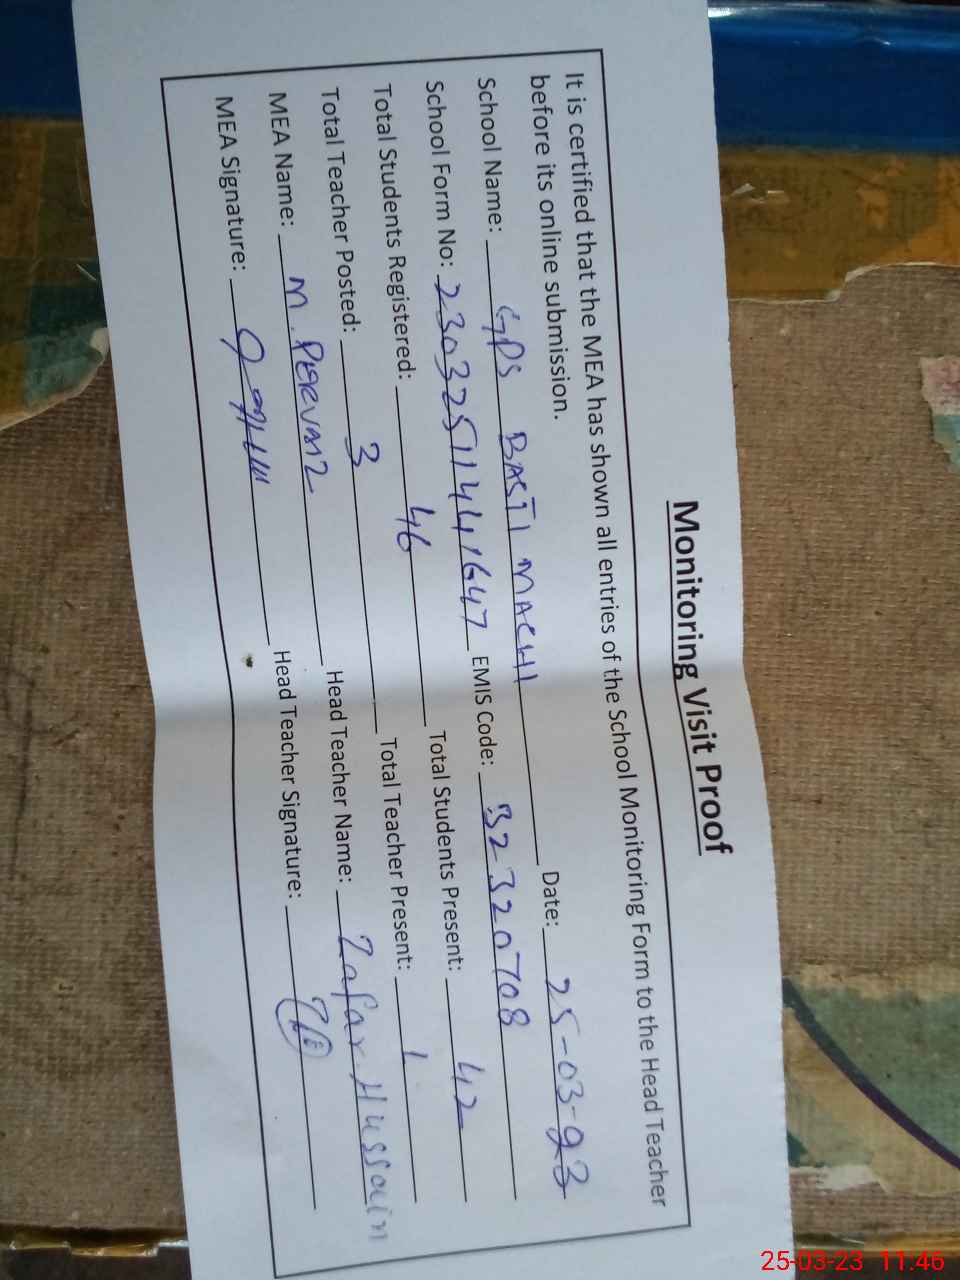 Monitoring Visit Proof
It is certified that the MEA has shown all entries of the School Monitoring Form to the Head Teacher
before its online submission.
School Name: GPS BASTI MACHI Date: 25-03-23
School Form No: 230325114441647 EMIS Code: 32320708
Total Students Registered: 46 Total Students Present: 42
Total Teacher Posted: 3 Total Teacher Present: 1
MEA Name: M. PERVAIZ Head Teacher Name: Zafar Hussain
MEA Signature: Head Teacher Signature:
25-03-23 11:46